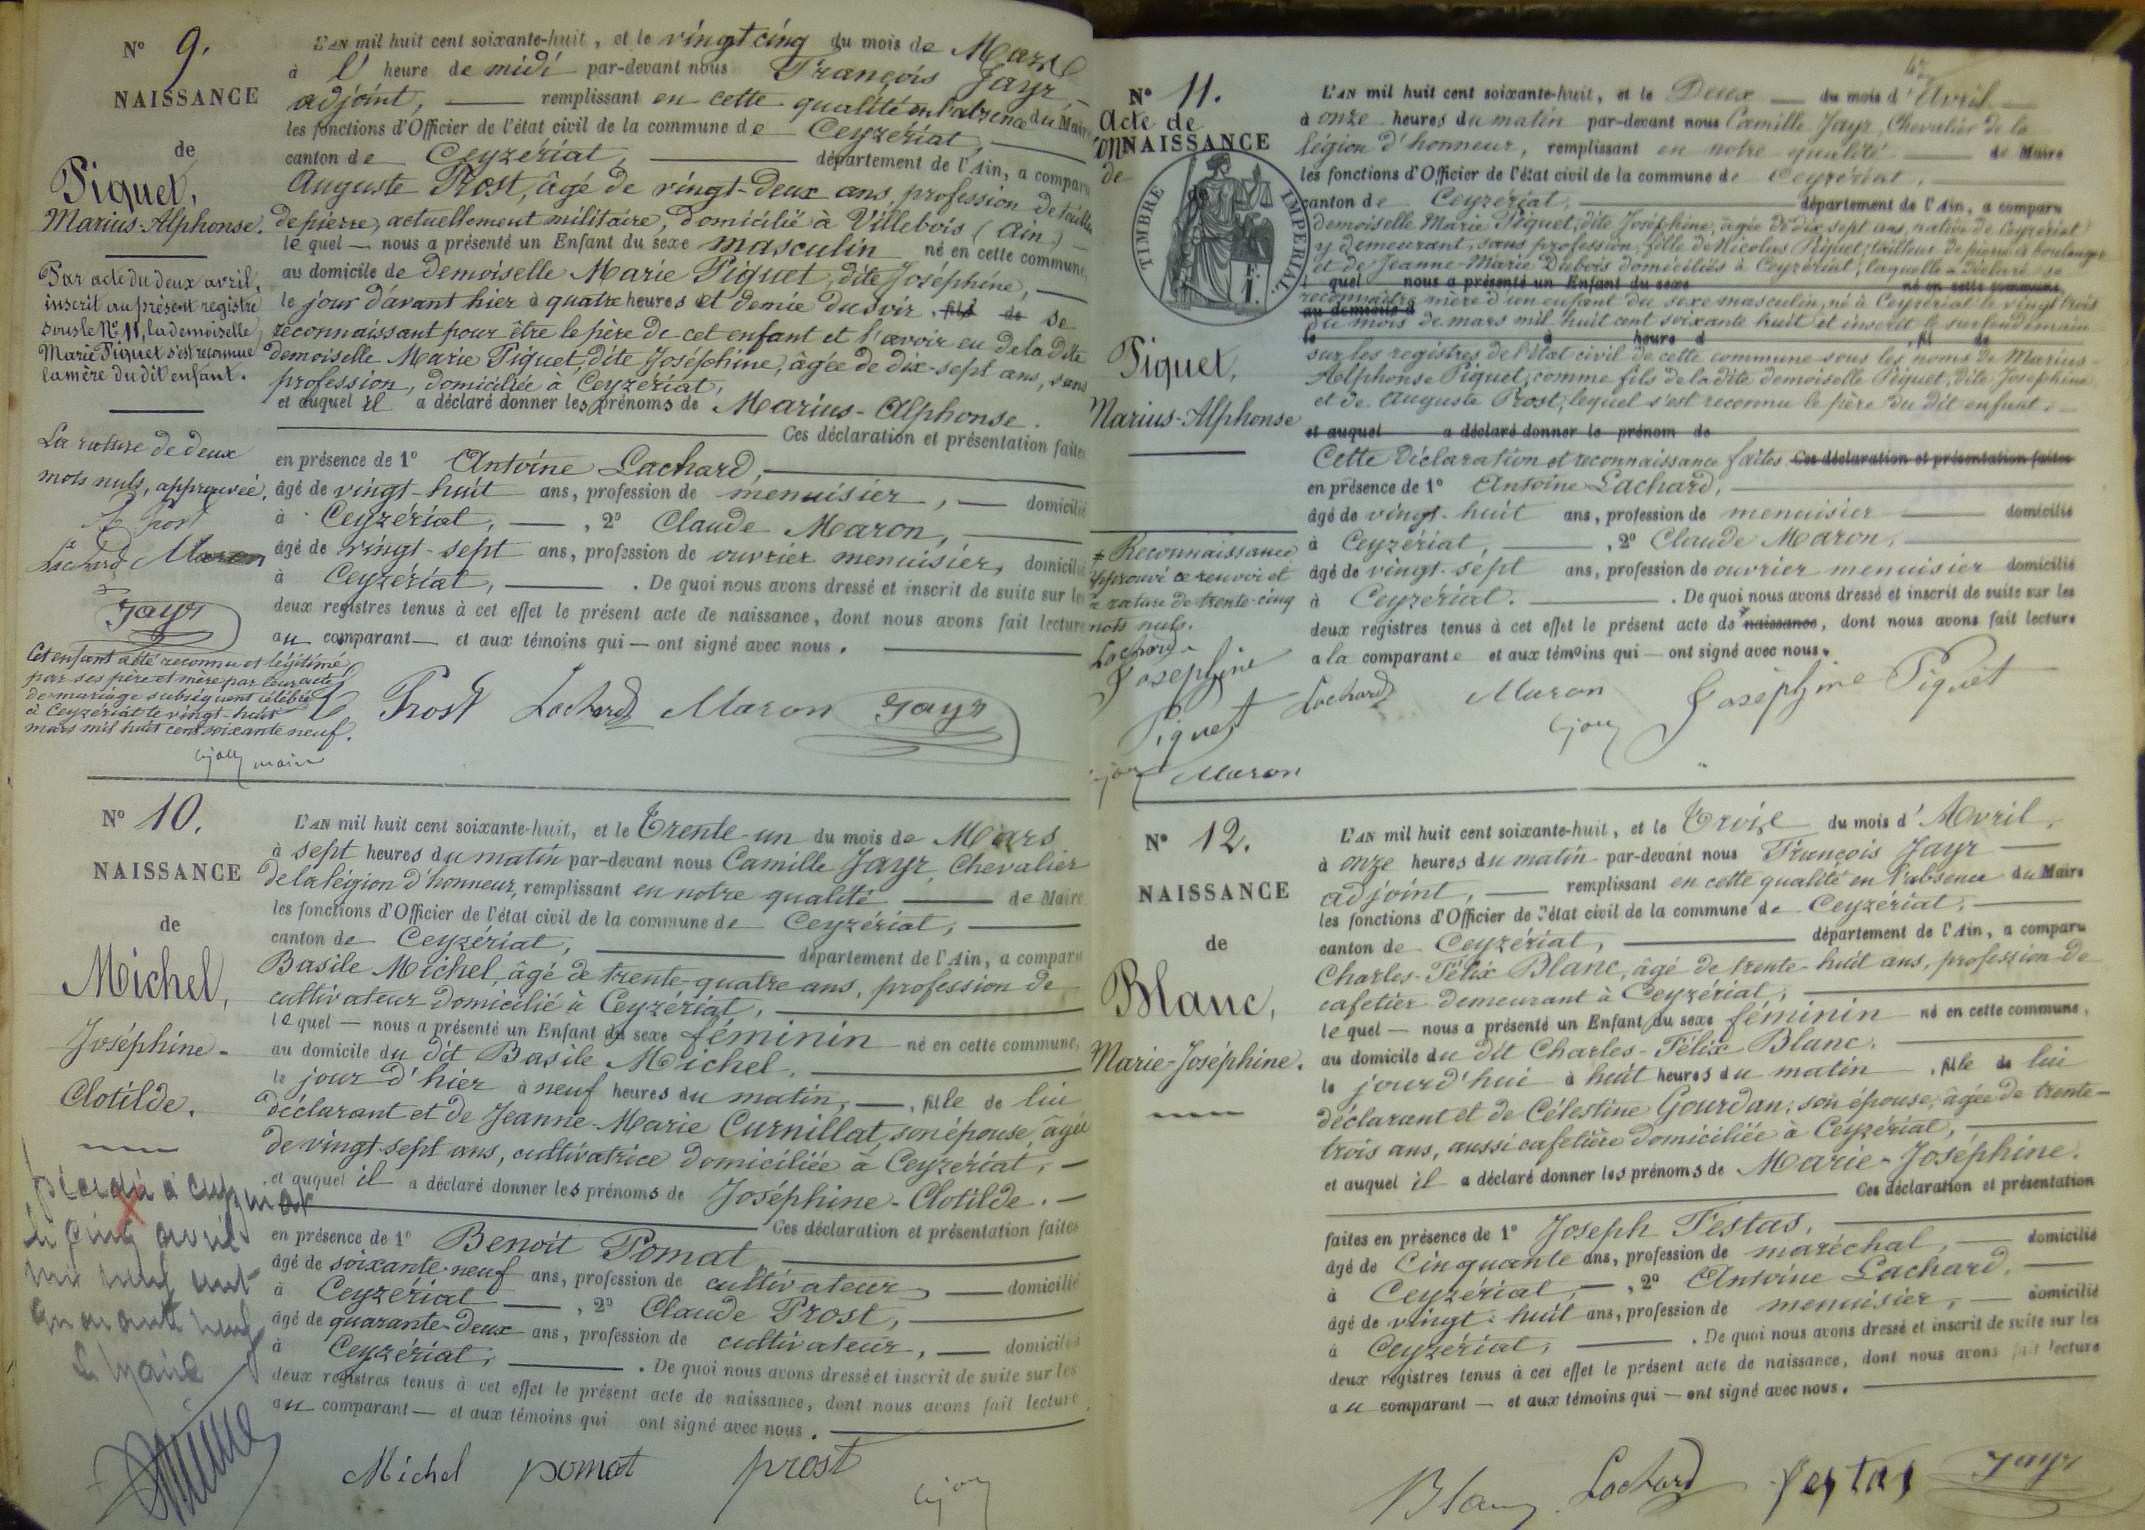 N° 9.
NAISSANCE
de
Piquet,
Marius-Alphonse.
Par acte du deux avril,
inscrit au présent registre
sous le N° 11, la demoiselle
Marie Piquet s'est reconnue
la mère du dit enfant.
La rature de deux
mots nuls, approuvée.
Prost
Lachard Maron
Jayr
Cet enfant a été reconnu et légitimé
par ses père et mère par leur acte
de mariage subséquent célébré
à Ceyzériat le vingt-huit
mars mil huit cent soixante neuf.
maire
L'AN mil huit cent soixante-huit, et le vingt cinq du mois de Mars
à l' heure de midi par-devant nous François Jayr,
adjoint, remplissant en cette qualité en l'absence du Maire
les fonctions d'Officier de l'état civil de la commune de Ceyzériat,
canton de Ceyzériat, département de l'Ain, a comparu
Auguste Prost, âgé de vingt-deux ans, profession de tailleur
de pierre, actuellement militaire, domicilié à Villebois (Ain)
lequel nous a présenté un Enfant du sexe masculin né en cette commune,
au domicile de demoiselle Marie Piquet, dite Joséphine,
le jour d'avant hier à quatre heures et demie du soir, fils de se
reconnaissant pour être le père de cet enfant et l'avoir eu de la dite
demoiselle Marie Piquet, dite Joséphine, âgée de dix-sept ans, sans
profession, domiciliée à Ceyzériat,
et auquel il a déclaré donner les prénoms de Marius-Alphonse.
Ces déclaration et présentation faites
en présence de 1° Antoine Lachard,
âgé de vingt-huit ans, profession de menuisier, domicilié
à Ceyzériat, , 2° Claude Maron,
âgé de vingt-sept ans, profession de ouvrier menuisier, domicilié
à Ceyzériat, . De quoi nous avons dressé et inscrit de suite sur les
deux registres tenus à cet effet le présent acte de naissance, dont nous avons fait lecture
au comparant et aux témoins qui ont signé avec nous.
Prost Lachard Maron Jayr
N° 10.
NAISSANCE
de
Michel,
Joséphine-
Clotilde.
le cinq avril
mil neuf cent
quarante neuf
Le Maire
L'AN mil huit cent soixante-huit, et le Trente-un du mois de Mars
à sept heures du matin par-devant nous Camille Jayr, Chevalier
de la légion d'honneur, remplissant en notre qualité de Maire
les fonctions d'Officier de l'état civil de la commune de Ceyzériat,
canton de Ceyzériat, département de l'Ain, a comparu
Basile Michel, âgé de trente-quatre ans, profession de
cultivateur domicilié à Ceyzériat,
lequel nous a présenté un Enfant du sexe féminin né en cette commune,
au domicile du dit Basile Michel,
le jour d'hier à neuf heures du matin, , fille de lui
déclarant et de Jeanne-Marie Curnillat, son épouse, âgée
de vingt-sept ans, cultivatrice domiciliée à Ceyzériat,
et auquel il a déclaré donner les prénoms de Joséphine-Clotilde.
Ces déclaration et présentation faites
en présence de 1° Benoit Pomat
âgé de soixante-neuf ans, profession de cultivateur domicilié
à Ceyzériat , 2° Claude Prost,
âgé de quarante-deux ans, profession de cultivateur, domicilié
à Ceyzériat, . De quoi nous avons dressé et inscrit de suite sur les
deux registres tenus à cet effet le présent acte de naissance, dont nous avons fait lecture
au comparant et aux témoins qui ont signé avec nous.
Michel pomat prost
42
N° 11.
Acte de
NAISSANCE
de
TIMBRE IMPERIAL
Piquet,
Marius-Alphonse
# Reconnaissance
approuvé ce renvoi et
la rature de trente-cinq
mots nuls.
Lachard
Joséphine
Piquet
Maron
L'AN mil huit cent soixante-huit, et le Deux du mois d'Avril
à onze heures du matin par-devant nous Camille Jayr, Chevalier de la
légion d'honneur, remplissant en notre qualité de Maire
les fonctions d'Officier de l'état civil de la commune de Ceyzériat,
canton de Ceyzériat, département de l'Ain, a comparu
demoiselle Marie Piquet, dite Joséphine, âgée de dix sept ans, native de Ceyzériat
y demeurant, sans profession, fille de Nicolas Piquet, tailleur de pierre et boulanger
et de Jeanne-Marie Dubois domiciliés à Ceyzériat; laquelle a déclaré se
quel nous a présenté un Enfant du sexe né en cette commune,
reconnaître mère d'un enfant du sexe masculin, né à Ceyzériat le vingt trois
au domicile d
du mois de mars mil huit cent soixante huit et inscrit le surlendemain
le à heure d fil de
sur les registres de l'état civil de cette commune sous les noms de Marius-
Alphonse Piquet, comme fils de la dite demoiselle Piquet, dite Joséphine
et de Auguste Prost, lequel s'est reconnu le père du dit enfant.
et auquel a déclaré donner le prénom de
Cette déclaration et reconnaissance faites Ces déclaration et présentation faites
en présence de 1° Antoine Lachard,
âgé de vingt-huit ans, profession de menuisier domicilié
à Ceyzériat, , 2° Claude Maron,
âgé de vingt-sept ans, profession de ouvrier menuisier domicilié
à Ceyzériat. . De quoi nous avons dressé et inscrit de suite sur les
deux registres tenus à cet effet le présent acte de naissance, dont nous avons fait lecture
a la comparante et aux témoins qui ont signé avec nous.
Lachard Maron Joséphine Piquet
N° 12.
NAISSANCE
de
Blanc,
Marie-Joséphine.
L'AN mil huit cent soixante-huit, et le Trois du mois d'Avril,
à onze heures du matin par-devant nous François Jayr
adjoint, remplissant en cette qualité en l'absence du Maire
les fonctions d'Officier de l'état civil de la commune de Ceyzériat,
canton de Ceyzériat, département de l'Ain, a comparu
Charles-Félix Blanc, âgé de trente-huit ans, profession de
cafetier demeurant à Ceyzériat,
lequel nous a présenté un Enfant du sexe féminin né en cette commune,
au domicile du dit Charles-Félix Blanc,
le jourd'hui à huit heures du matin , fille de lui
déclarant et de Célestine Gourdan, son épouse, âgée de trente-
trois ans, aussi cafetière domiciliée à Ceyzériat,
et auquel il a déclaré donner les prénoms de Marie-Joséphine.
Ces déclaration et présentation
faites en présence de 1° Joseph Festas,
âgé de Cinquante ans, profession de maréchal, domicilié
à Ceyzériat, , 2° Antoine Lachard,
âgé de vingt-huit ans, profession de menuisier, domicilié
à Ceyzériat, . De quoi nous avons dressé et inscrit de suite sur les
deux registres tenus à cet effet le présent acte de naissance, dont nous avons fait lecture
au comparant et aux témoins qui ont signé avec nous.
Blanc Lachard festas Jayr